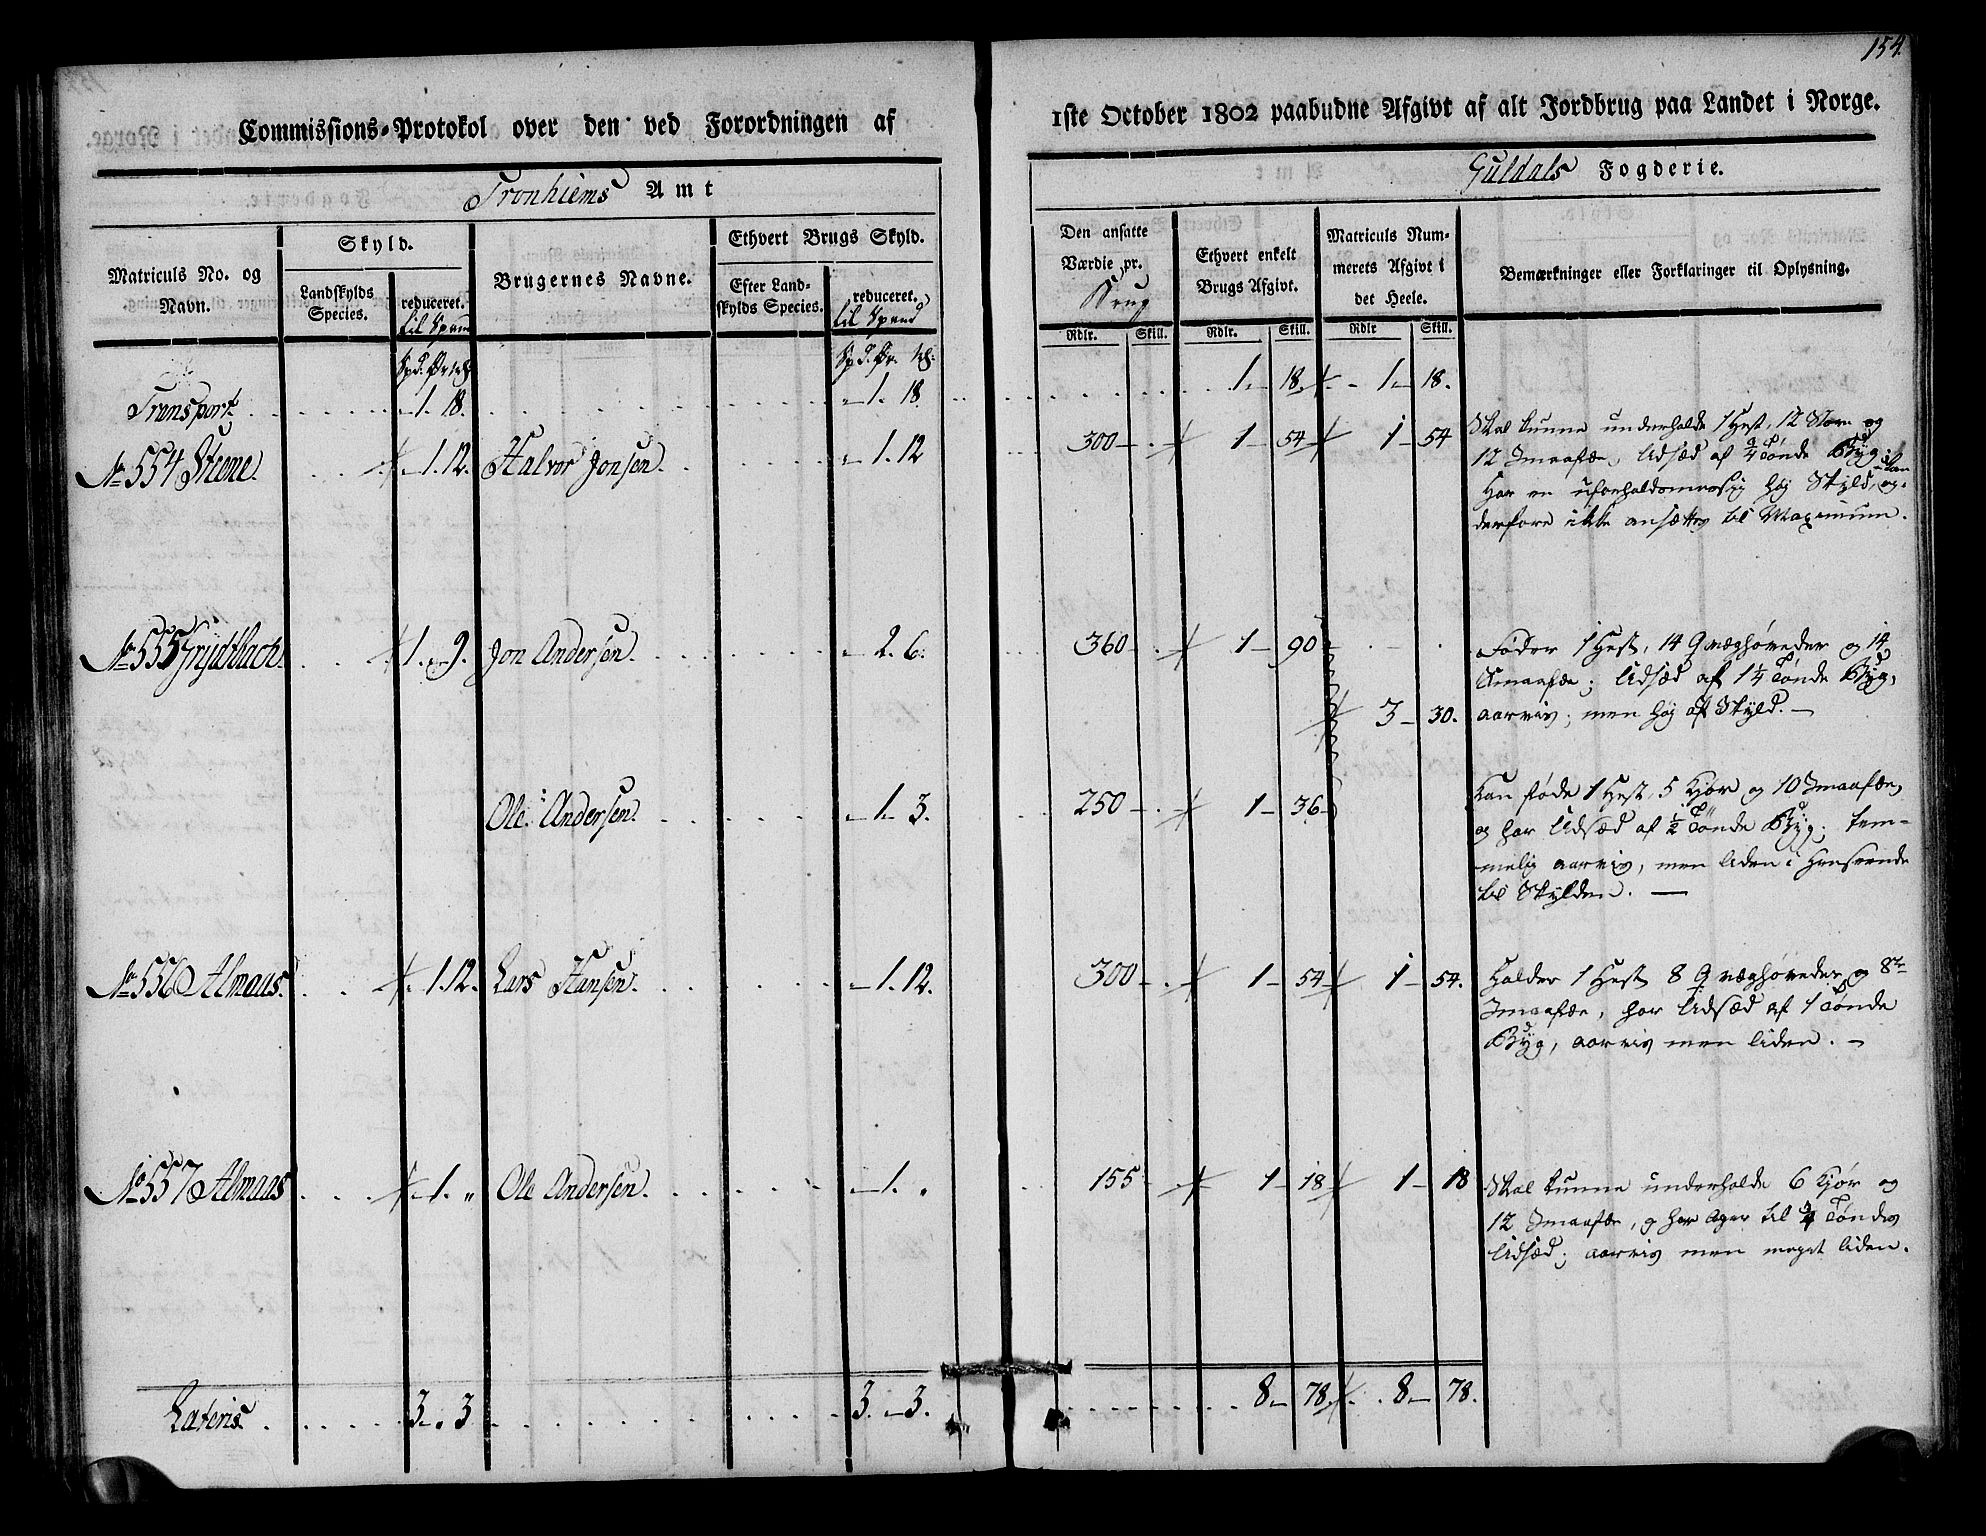 154.
Commissions-Protokol over den ved Forordningen af
1ste October 1802 paabudne Afgivt af alt Jordbrug paa Landet i Norge.
Tronhiems Amt
Guldals Fogderie.
Matriculs No. og Navn.
Skyld.
Landskylds Species.
reduceret. til Spand
Brugernes Navne.
Ethvert Brugs Skyld.
Efter Landskylds Species.
reduceret. til Spand
Den ansatte Værdie pr. Brug
Ethvert enkelt Brugs Afgivt.
Matriculs Nummerets Afgivt i det Heele.
Bemærkninger eller Forklaringer til Oplysning.
Rdlr. Skill. Rdlr. Skill. Rdlr Skill.
Transport . . . 1. 18. . . . 1. 18. . . . 1 - 18. 1 - 18.
No 554 Stene. . . 1. 12. Halvor Jonsen. . . . 1. 12 300 - . 1 - 54 1 - 54
Skal kunne underholde 1 Hest, 12 Store og
12 Smaafæ, Udsæd af 3/4 Tønde Byg;
Har en uforholdsmæssig høj Skyld, og kan
derfore ikke ansættes til Maximum.
No 555 Grydtbach. . . 1. - 9. Jon Andersen. . . . 2. 6. 360 - . 1 - 90 - . - .
3 - 30.
Føder 1 Hest, 14 Qvæghøveder og 14
Smaafæ; Udsæd af 1 1/4 Tønde Byg,
aarvis; men høj af Skyld. -
Ole Andersen. . . . 1 - 3. 250 - . 1 - 36 -
Kan føde 1 Hest, 5 Kjør og 10 Smaafæ,
og har Udsæd af 1/2 Tønde Byg; tem-
melig aarvis, men liden i Henseende
til Skylden. -
No 556 Almaas. . . 1. 12. Lars Hansen. . . . 1. 12. 300 - . 1 - 54 1 - 54.
Holder 1 Hest 8 Qvæghøveder og 8te
Smaafæ, har Udsæd af 1 Tønde
Byg, aarvis men liden. -
No 557 Almaas . . 1. " Ole Andersen. . . . 1. " 155 - . 1 - 18 1 - 18
Skal kunne underholde 6 Kjør og
12 Smaafæ, og har Ager til 3/4 Tøndes
Udsæd; aarvis men meget liden.
Lateris. . . . 3 - . 3 . . . 3. - 3. . . . 8 - 78. 8 - 78.